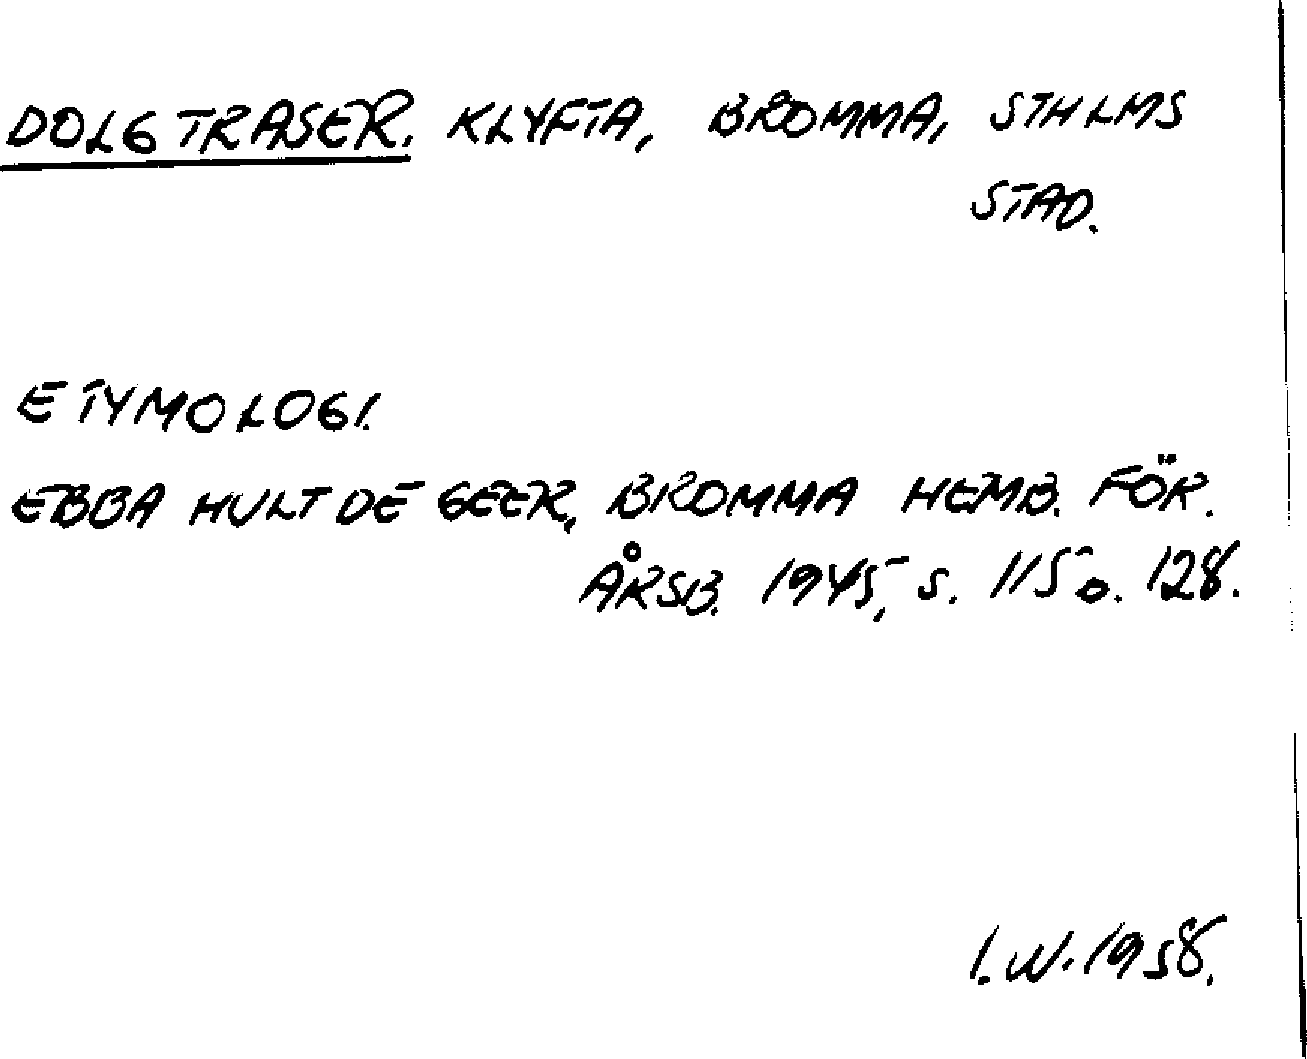 DOLGTRASER. KLYFTA, BROMMA, STHLMS
STAD.
ETYMOLOGI.
EBBA HULT DE GEER, BROMMA HEMB. FÖR.
ÅRSB. 1945, S. 115 o. 128.
I.W. 1958.